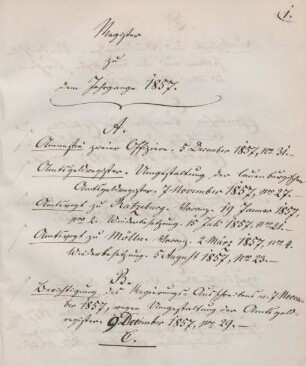 1.
Register
zu
dem Jahrgange 1857.
A.
Amnestie zweier Offiziere. 5 December 1857, no. 31.
Amtsgeldregister. Umgestaltung der Lauenburgischen
Amtsgeldregister. 7 November 1857, no. 27.
Amtsvogt zu Ratzeburg. Vacanz. 19 Januar 1857
no. 2. Wiederbesetzung. 15 Juli 1857, no. 21.
Amtsvogt zu Mölln. Vacanz. 2 März 1857, no. 4.
Wiederbesetzung. 5 August 1857, no. 23.
B.
Berichtigung des Regierungs Ausschreibens v. 7 Novem-
ber 1857, wegen Umgestaltung der Amtsgeld-
register. 9 December 1857, no. 29.
C.